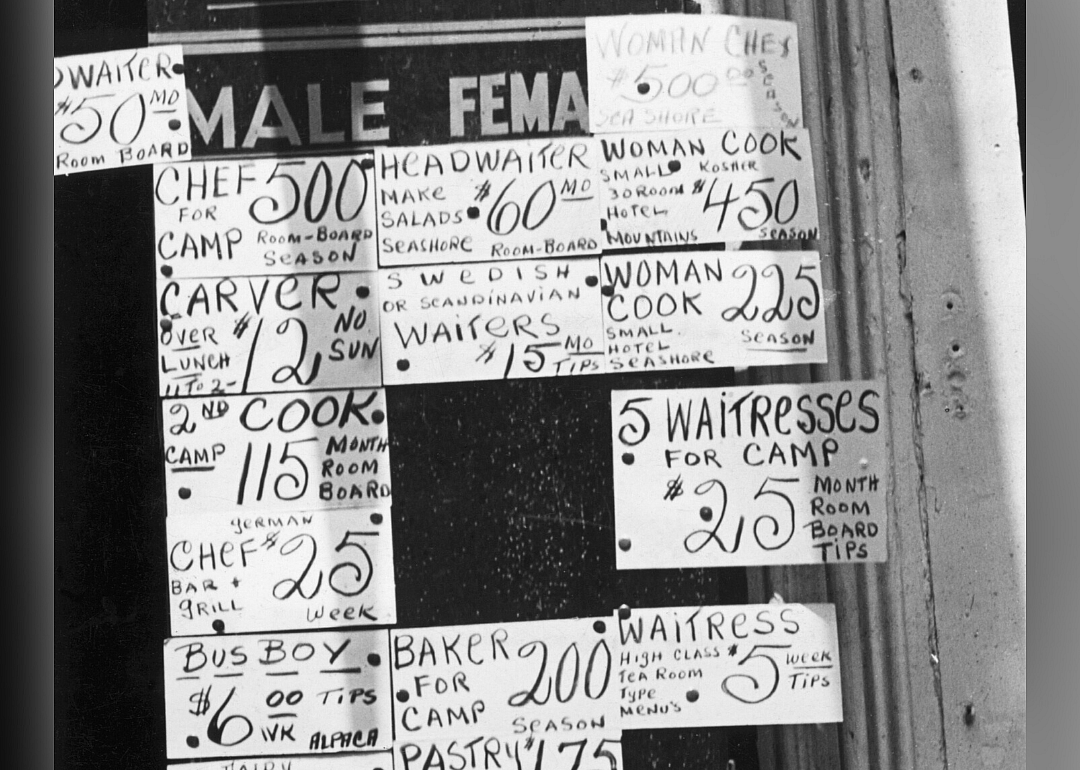 WAITER
$50 MO
ROOM BOARD
MALE FEMA
WOMAN CHEF
$500 00 SEASON
SEA SHORE
CHEF 500
FOR
CAMP ROOM-BOARD
SEASON
HEADWAITER
MAKE
SALADS $60 MO
SEASHORE ROOM-BOARD
WOMAN COOK
SMALL KOSHER
30 ROOM $450
HOTEL
MOUNTAINS SEASON
CARVER
OVER $12 NO
LUNCH SUN
11 TO 2-
SWEDISH
OR SCANDINAVIAN
WAITERS
$15 MO
TIPS
WOMAN 225
COOK
SMALL SEASON
HOTEL
SEASHORE
2ND COOK
CAMP 115 MONTH
ROOM
BOARD
5 WAITRESSES
FOR CAMP
$25 MONTH
ROOM
BOARD
TIPS
GERMAN
CHEF $25
BAR +
GRILL WEEK
BUS BOY
$6 00 TIPS
WK ALPACA
BAKER 200
FOR
CAMP SEASON
WAITRESS
HIGH CLASS $5 WEEK
TEA ROOM TIPS
TYPE
MENU'S
PASTRY $175